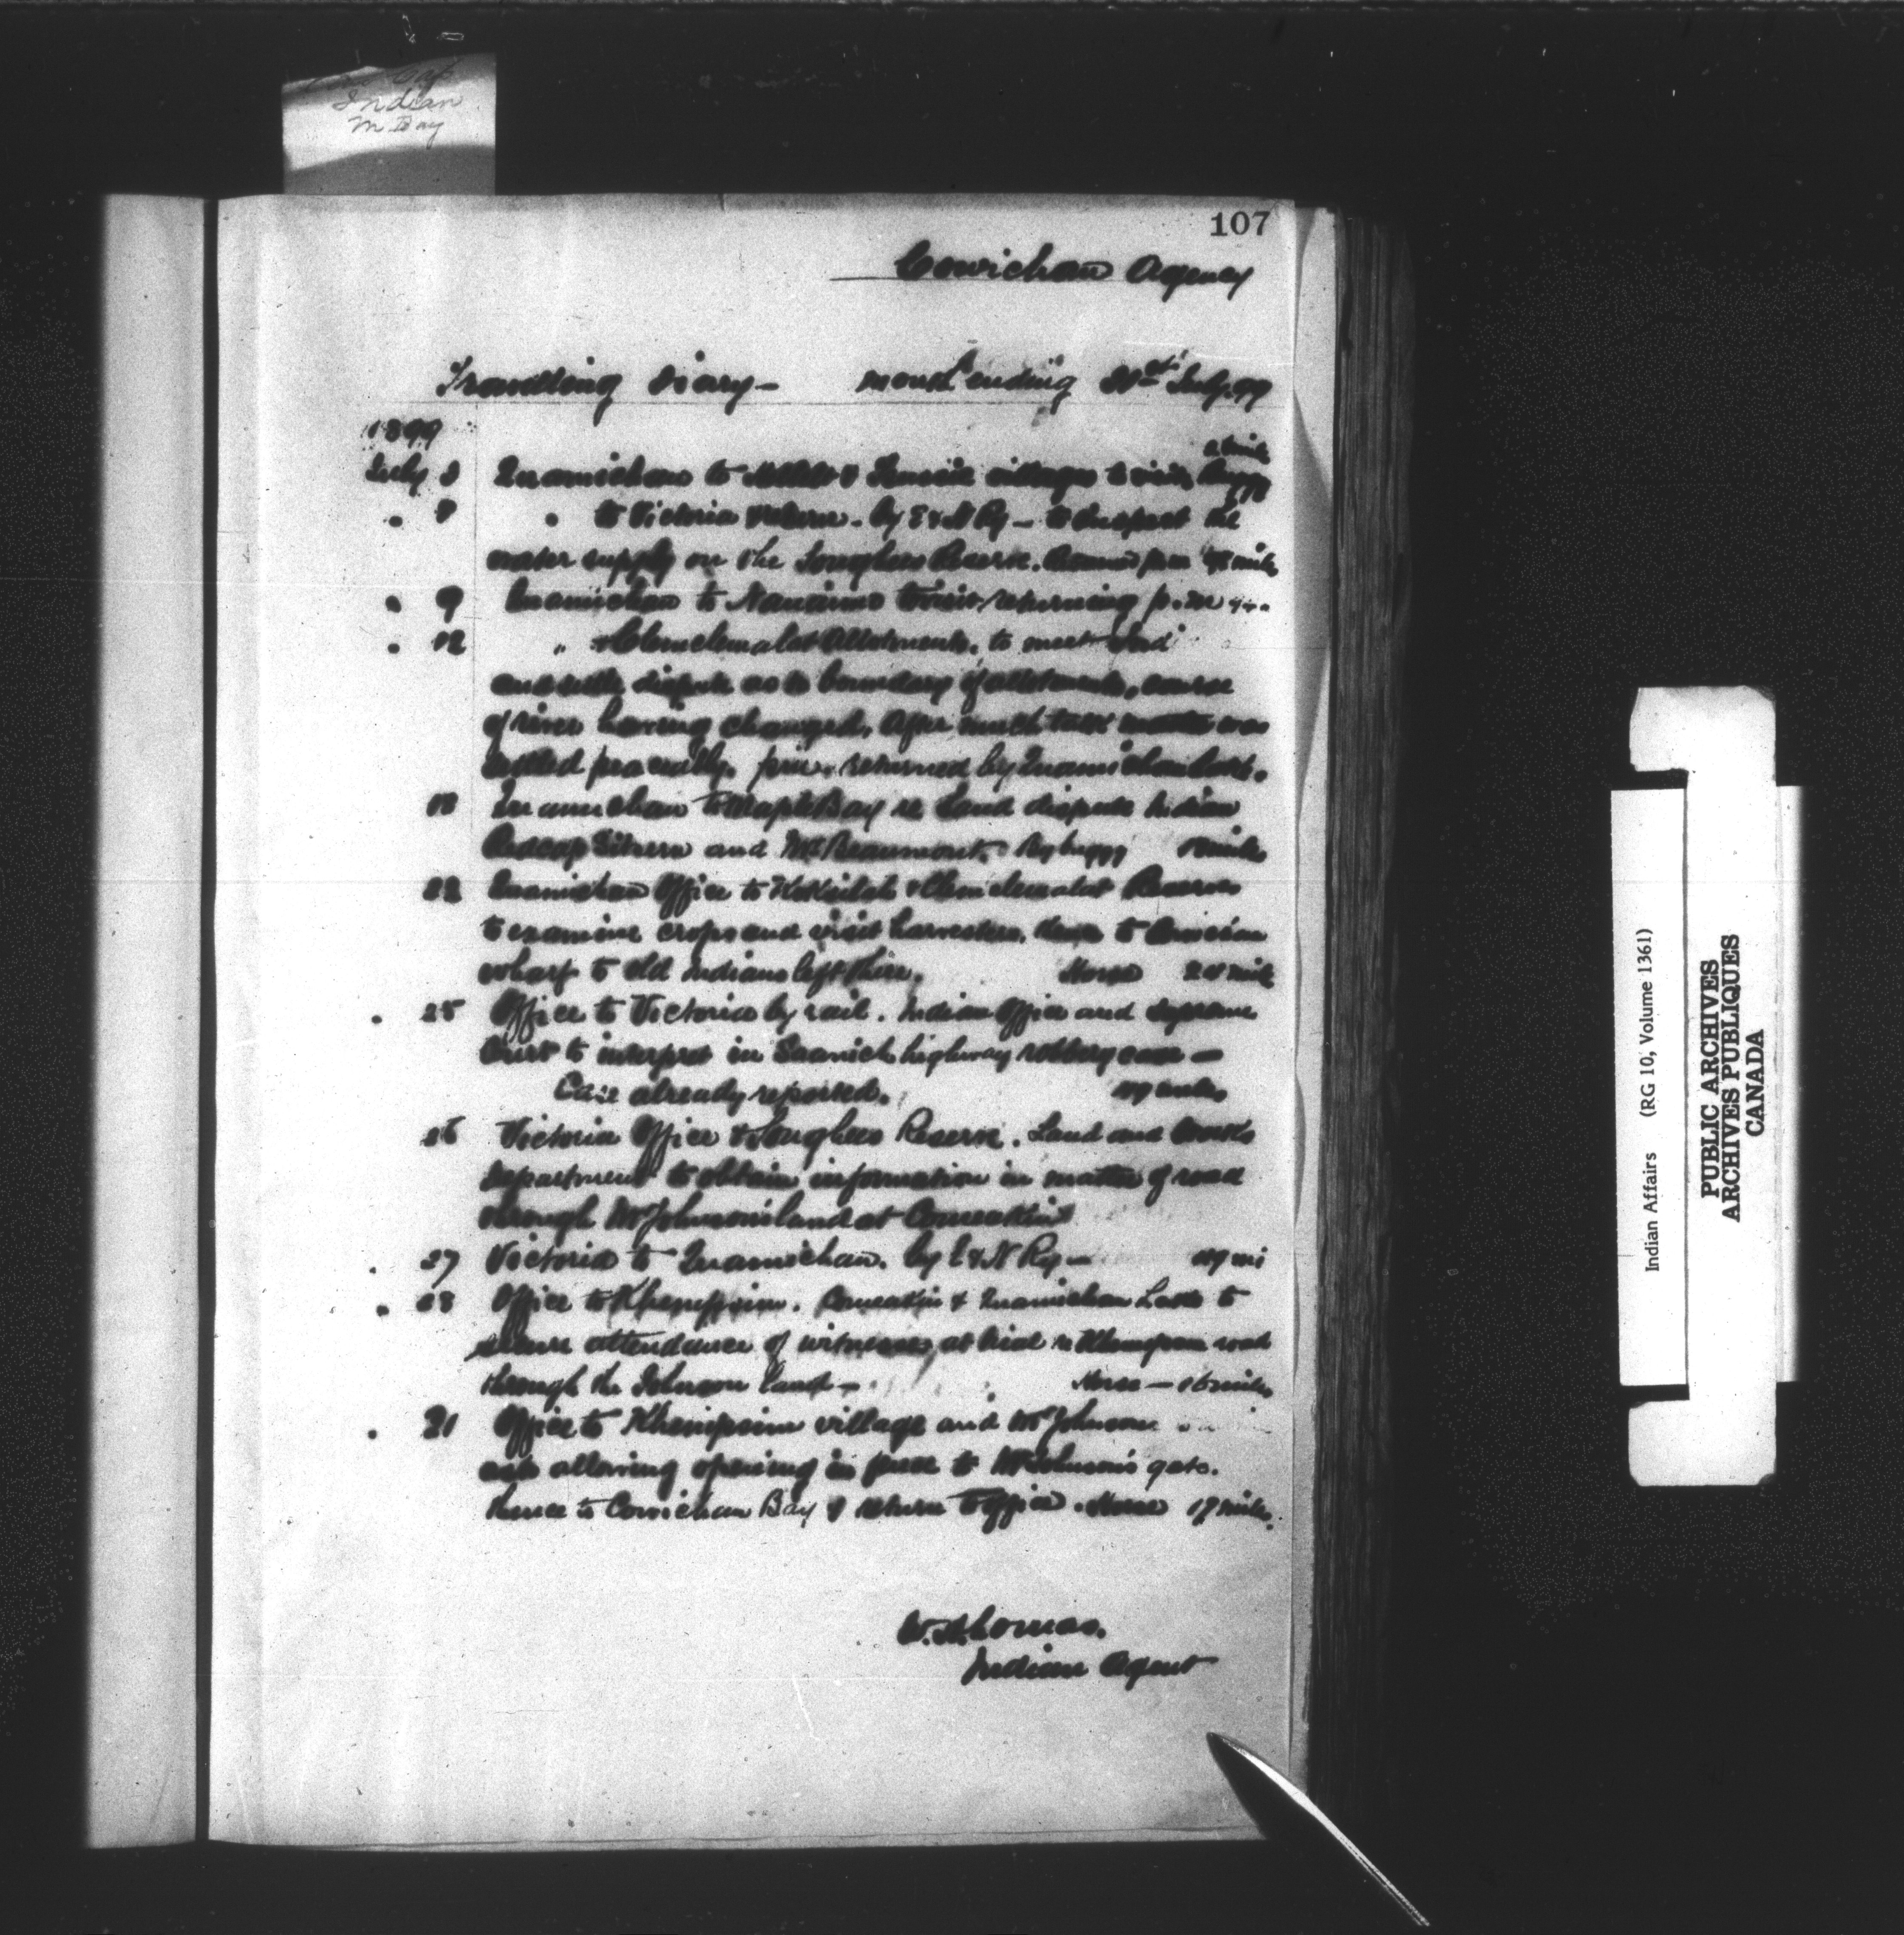 Indian
107
Cowichan Agency
Travelling Diary - month ending 31st July 99
1899
July 3 Quamichan to & villages to visit Buggy
" 8 " to Victoria & return - by E & N Ry - to inspect the
water supply on the Songhees Reserve. miles
" 9 Quamichan to Nanaimo to visit returning p.m
" 12 " Clemclemalat Allotments, to meet Ind
and settle dispute as to boundary of allotments, course
of river having changed. After much talk matter was
settled peaceably. returned by Quamichan
18 Quamichan to Maple Bay re Land dispute Indian
and Mr Beaumont. By buggy miles
22 Quamichan Office to KoKsilah & Clemclemalat Reserves
to examine crops and visit harvesters. thence to Cowichan
wharf to old Indians left there. Horse miles
" 25 Office to Victoria by rail. Indian Office and Supreme
Court to interpret in Saanich highway robbery case -
Case already reported. miles
26 Victoria Office & Songhees Reserve. Land and Works
Department to obtain information in matter of road
through Mr Johnson's land at Comeakin
" 27 Victoria to Quamichan. by E & N Ry - mi
" 28 Office to Khenipsim. Comeakin & Quamichan to
secure attendance of witnesses at trial re Khenipsim road
through the Johnson land - Horse - 16 miles
" 31 Office to Khenipsim village and Mr Johnson
allowing opening in fence to Mr Johnson's gate.
thence to Cowichan Bay & return to Office. Horse 17 miles.
W.H. Lomas.
Indian Agent
Indian Affairs (RG 10, Volume 1361)
PUBLIC ARCHIVES
ARCHIVES PUBLIQUES
CANADA